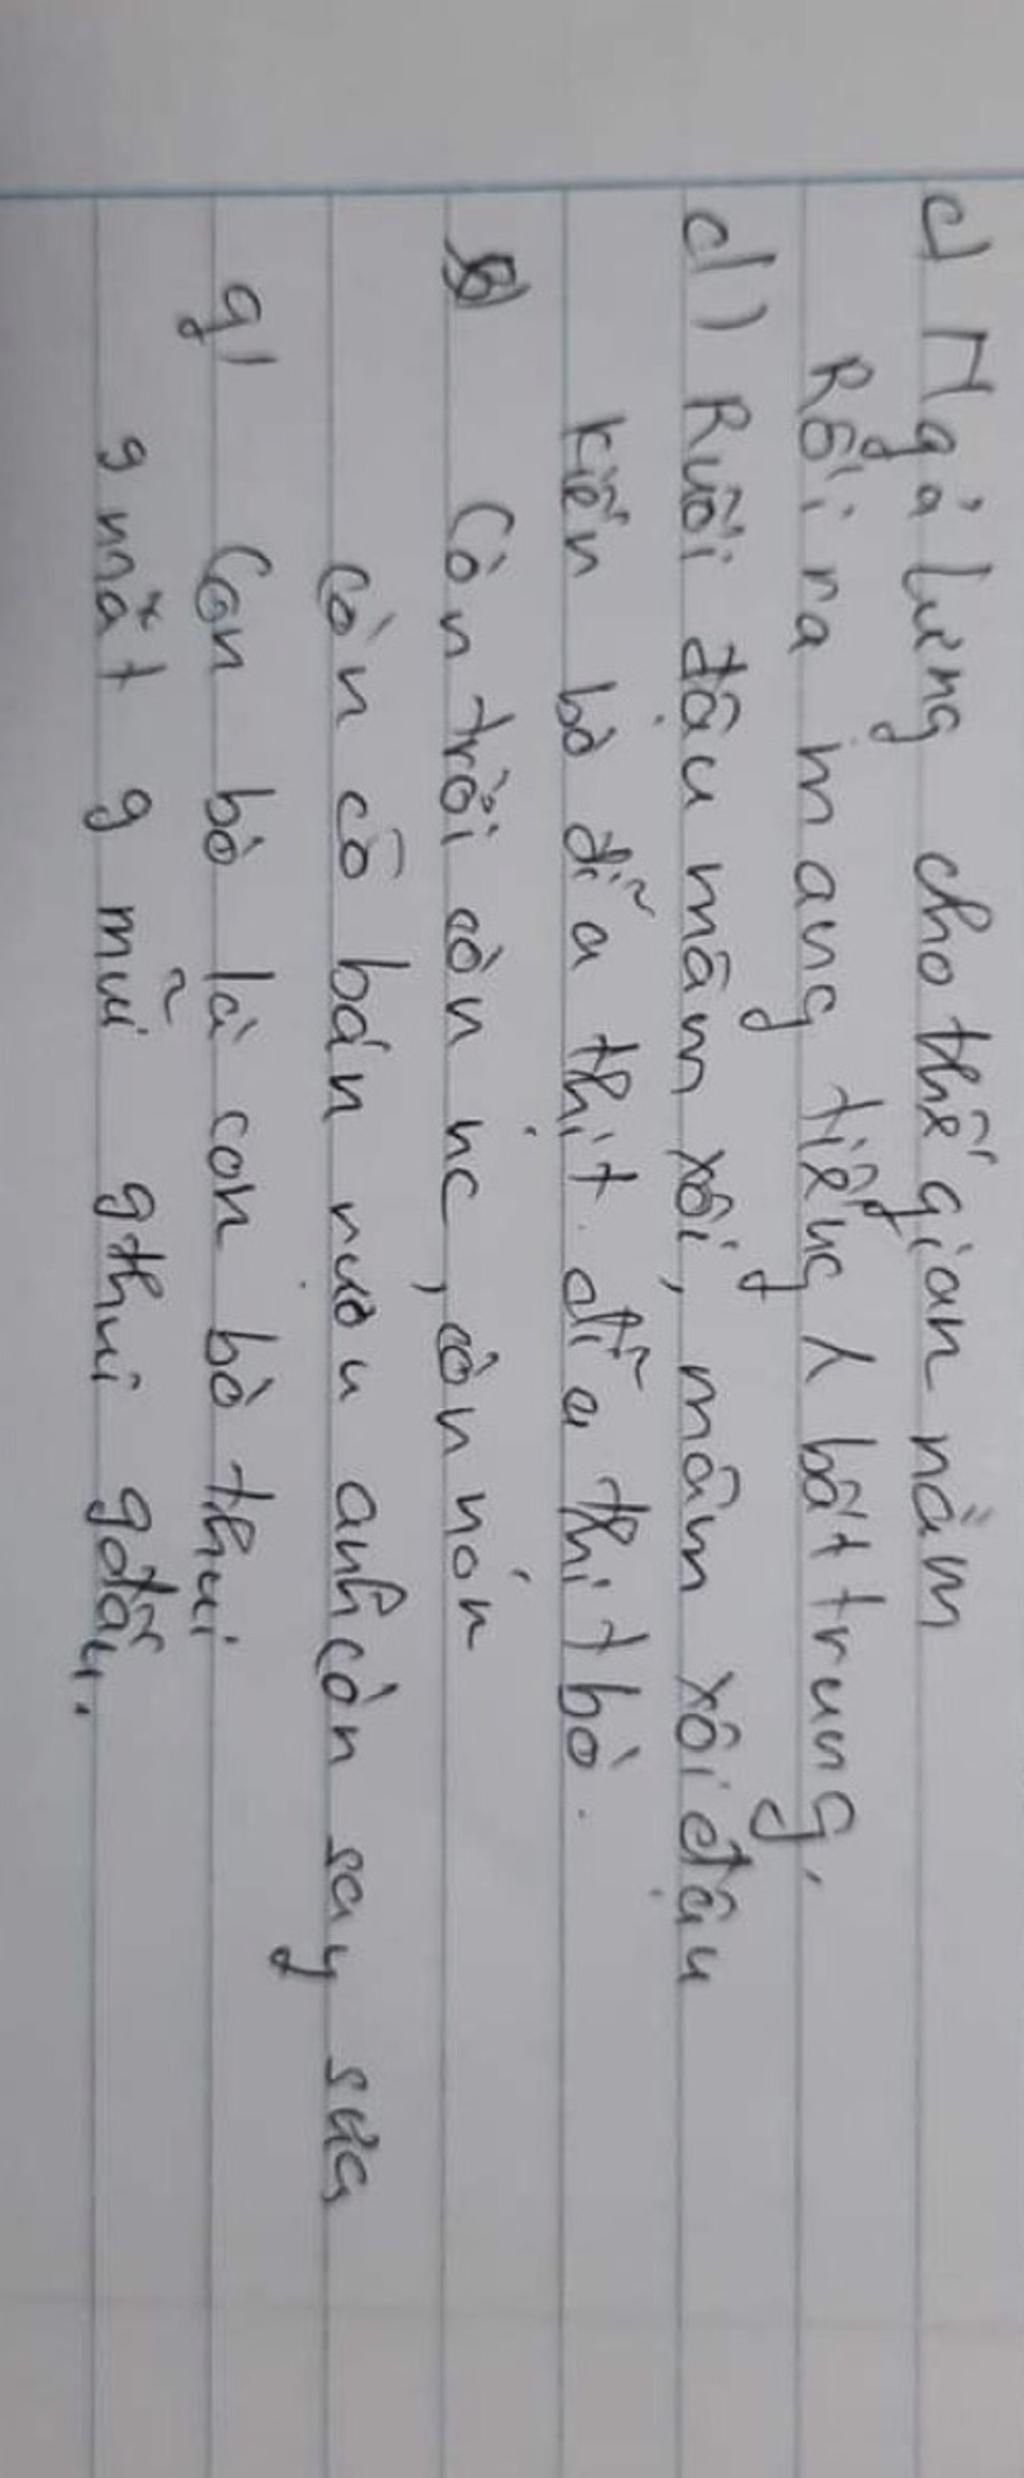 c) Ngả lưng cho thế gian nằm
Rồi ra mang tiếng bất trung,
d) Ruồi đậu mâm xôi, mâm xôi đậu
Kiến bò đĩa thịt đĩa thịt bò.
Còn trời còn nc, còn non
Còn cô bán rượu anh còn say sưa
g) Con bò là con bò thui
9 mắt 9 mũi 9thui 9đầu.